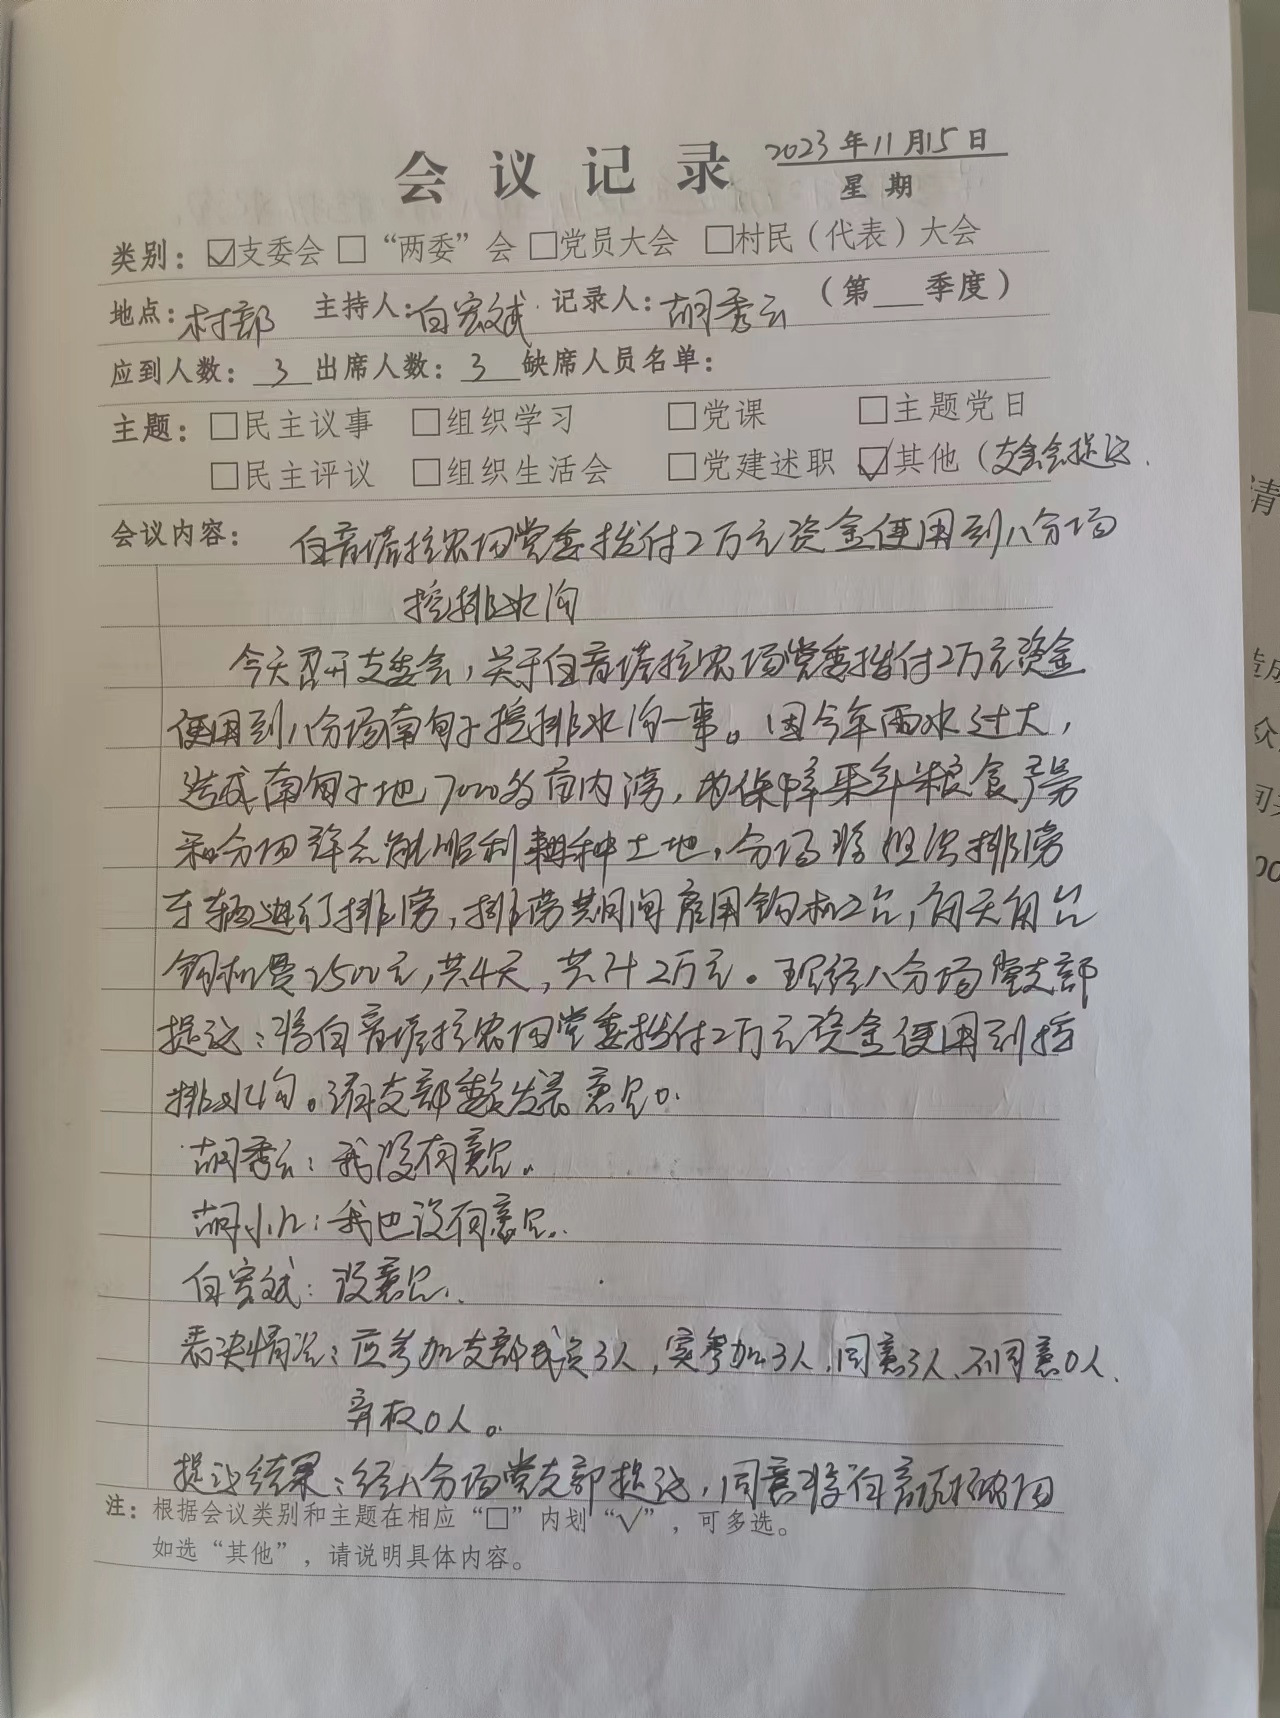 会议记录 2023年11月15日
星期
类别：☑支委会 □“两委”会 □党员大会 □村民（代表）大会
地点：村部 主持人：白宏斌 记录人：胡秀云 （第 季度）
应到人数：3 出席人数：3 缺席人员名单：
主题：□民主议事 □组织学习 □党课 □主题党日
□民主评议 □组织生活会 □党建述职 ☑其他（支委会提议
会议内容：白音塔拉农场党委拨付2万元资金使用到八分场
挖排水沟
今天召开支委会，关于白音塔拉农场党委拨付2万元资金
使用到八分场南甸子挖排水沟一事。因今年雨水过大，
造成南甸子地7000多亩内涝，为保障来年粮食产量
和分场群众能顺利耕种土地，分场将组织排涝
车辆进行排涝，排涝共期间雇用钩机2台，每天每台
钩机是2500元，共4天，共计2万元。现经八分场党支部
提议：将白音塔拉农场党委拨付2万元资金使用到挖
排水沟。请支部委员发表意见。
胡秀云：我没有意见。
胡小儿：我也没有意见。
白宏斌：没意见。
表决情况：应参加支部成员3人，实参加3人，同意3人、不同意0人、
弃权0人。
提议结果：经八分场党支部提议，同意将白音塔拉农场
注：根据会议类别和主题在相应“□”内划“√”，可多选。
如选“其他”，请说明具体内容。
清
造成
众
00